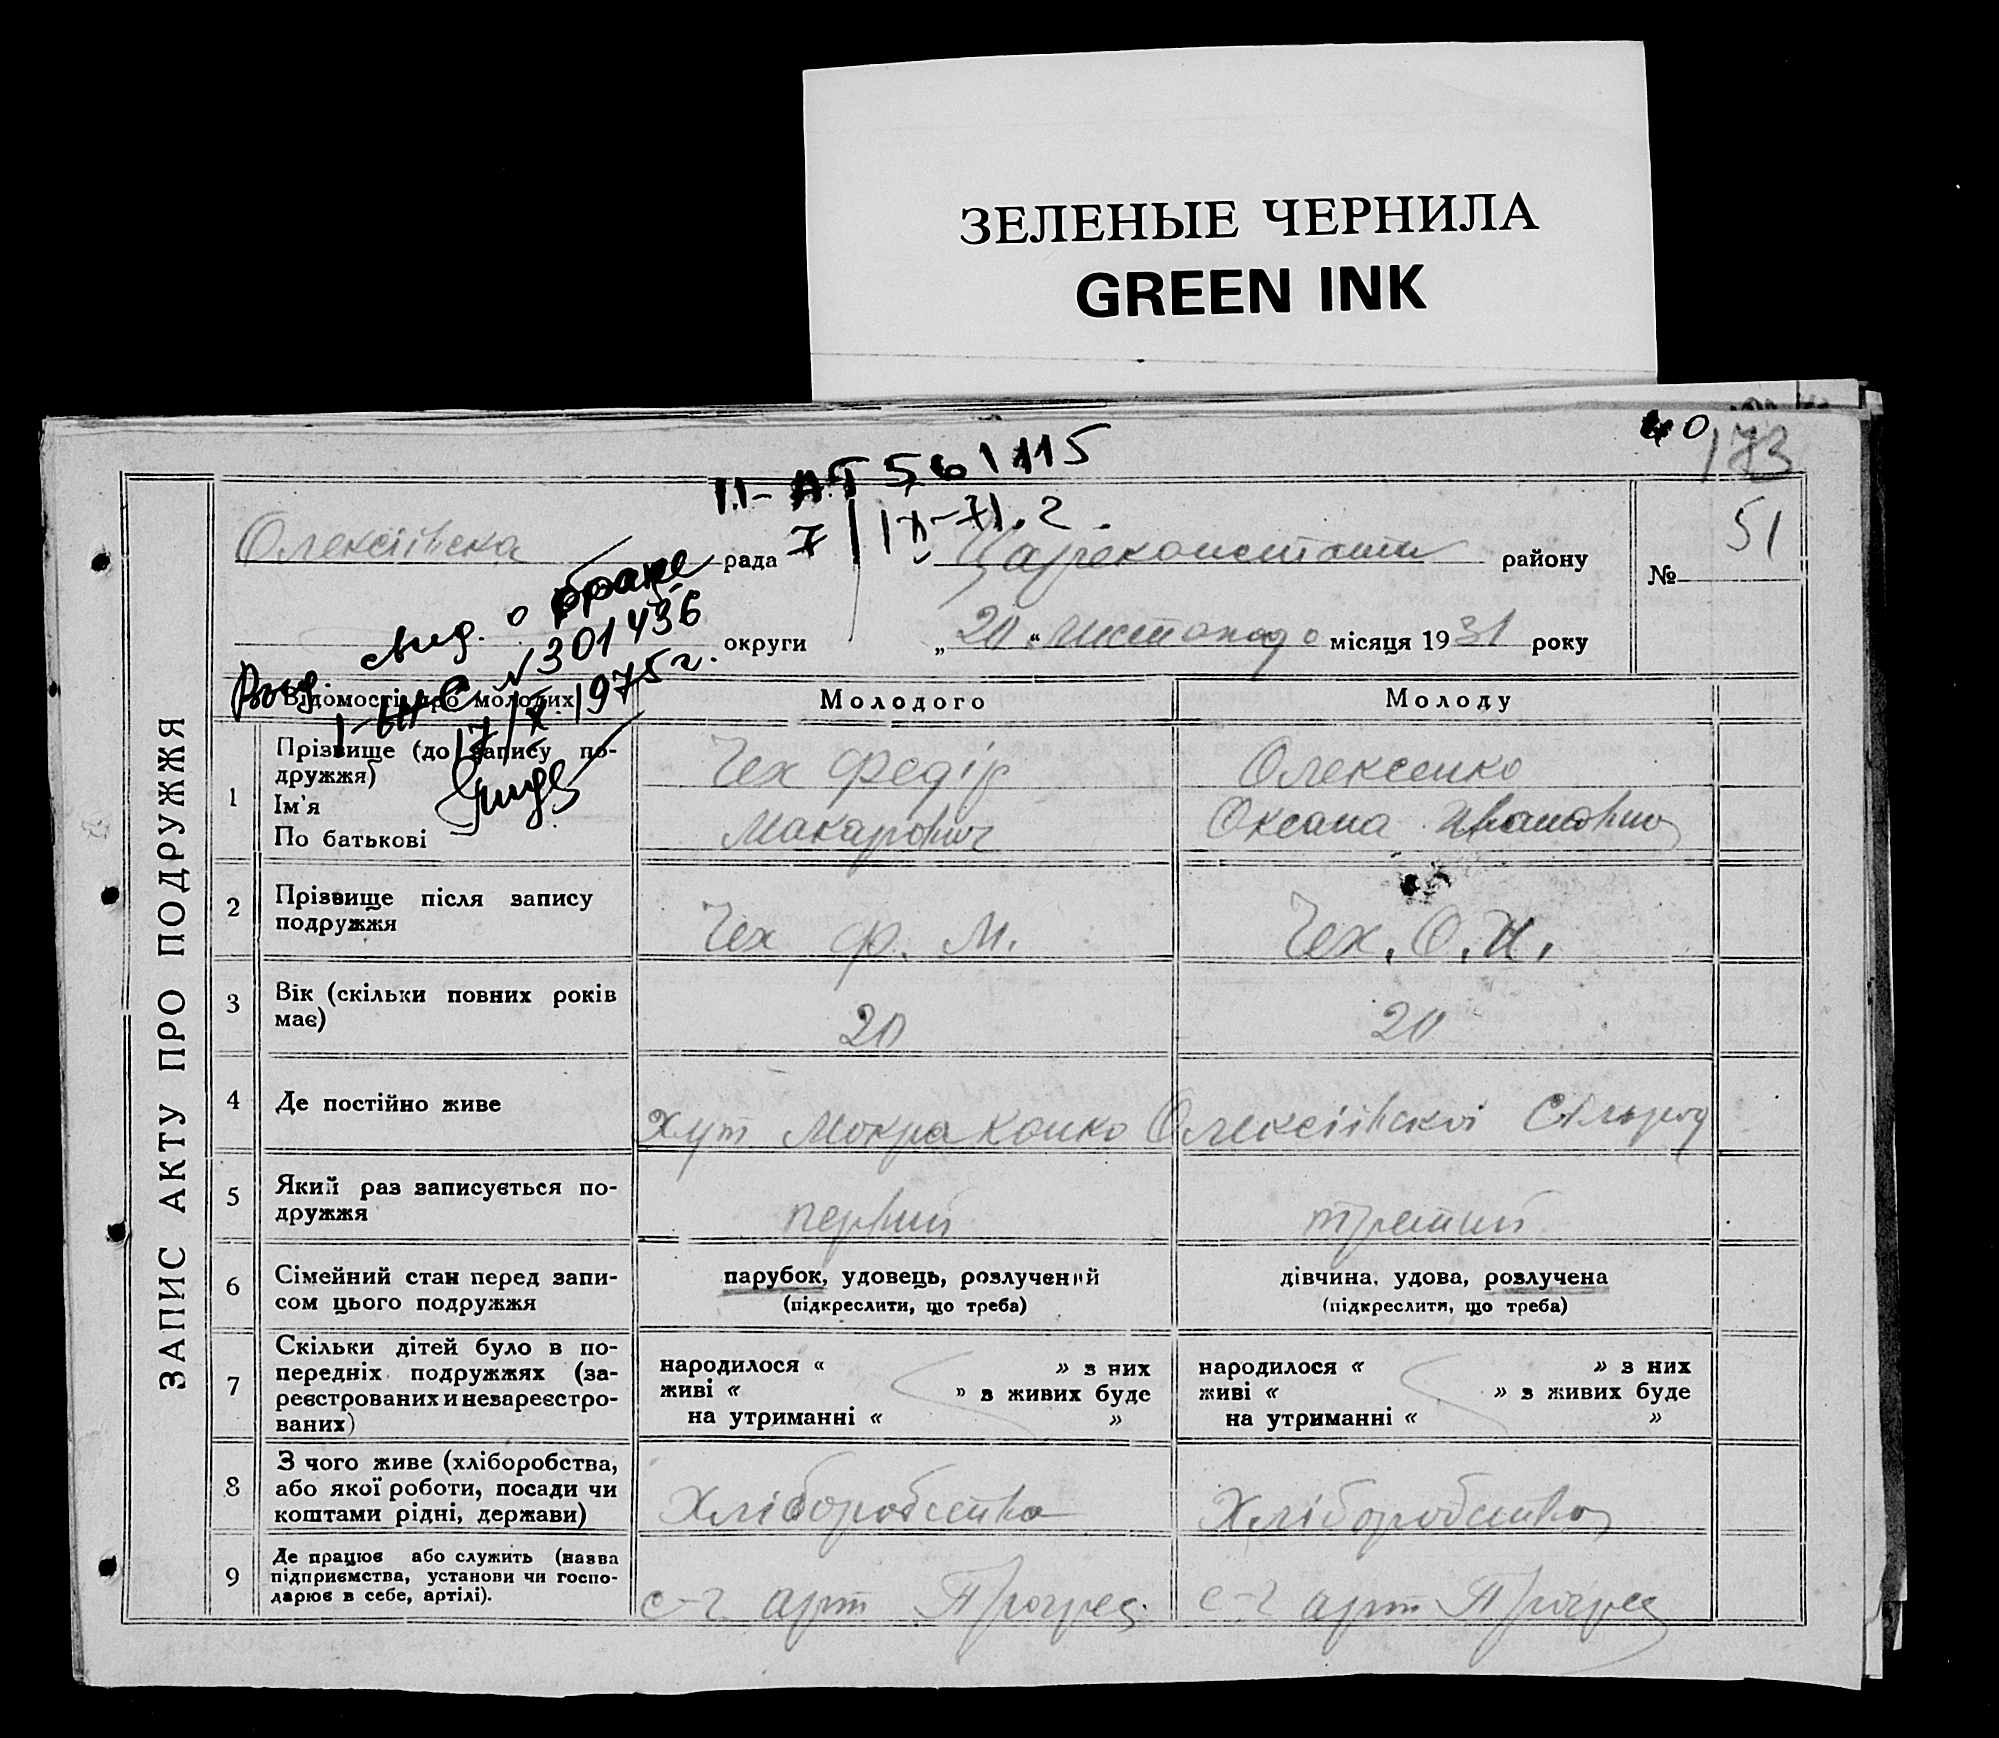 ЗЕЛЕНЫЕ ЧЕРНИЛА
GREEN INK
40
173
II-АП 561115
7/IX-71.г.
ЗАПИС АКТУ ПРО ПОДРУЖЖЯ
Олексіївска рада Царекопстоти району
№ 51
округи „20“ листопадо місяця 1931 року
Выд. свид. о браке
№ 301436
17/X 1975 г.
Відомості про молодих Молодого Молоду
1 Прізвище (до запису по-
дружжя)
Ім'я
По батькові
Чех Федір
Макарович
Олексенко
Оксана Ивановна
2 Прізвище після запису
подружжя
Чех Ф. М. Чех. О. И.
3 Вік (скільки повних років
має)
20 20
4 Де постійно живе Хут Мокра Конко Олексіївскоі Сільрад
5 Який раз записується по-
дружжя
первий третий
6 Сімейний стан перед запи-
сом цього подружжя
парубок, удовець, розлучений
(підкреслити, що треба)
дівчина, удова, розлучена
(підкреслити, що треба)
7 Скільки дітей було в по-
передніх подружжях (за-
реєстрованих и незареєстро-
ваних)
народилося « » з них
живі « » з живих буде
на утриманні « »
народилося « » з них
живі « » з живих буде
на утриманні « »
8 З чого живе (хліборобства,
або якої роботи, посади чи
коштами рідні, держави)
Хліборобства Хліборобства
9 Де працює або служить (назва
підприємства, установи чи госпо-
дарює в себе, артілі).
с-г. арт Прогрес с-г арт Прогрес